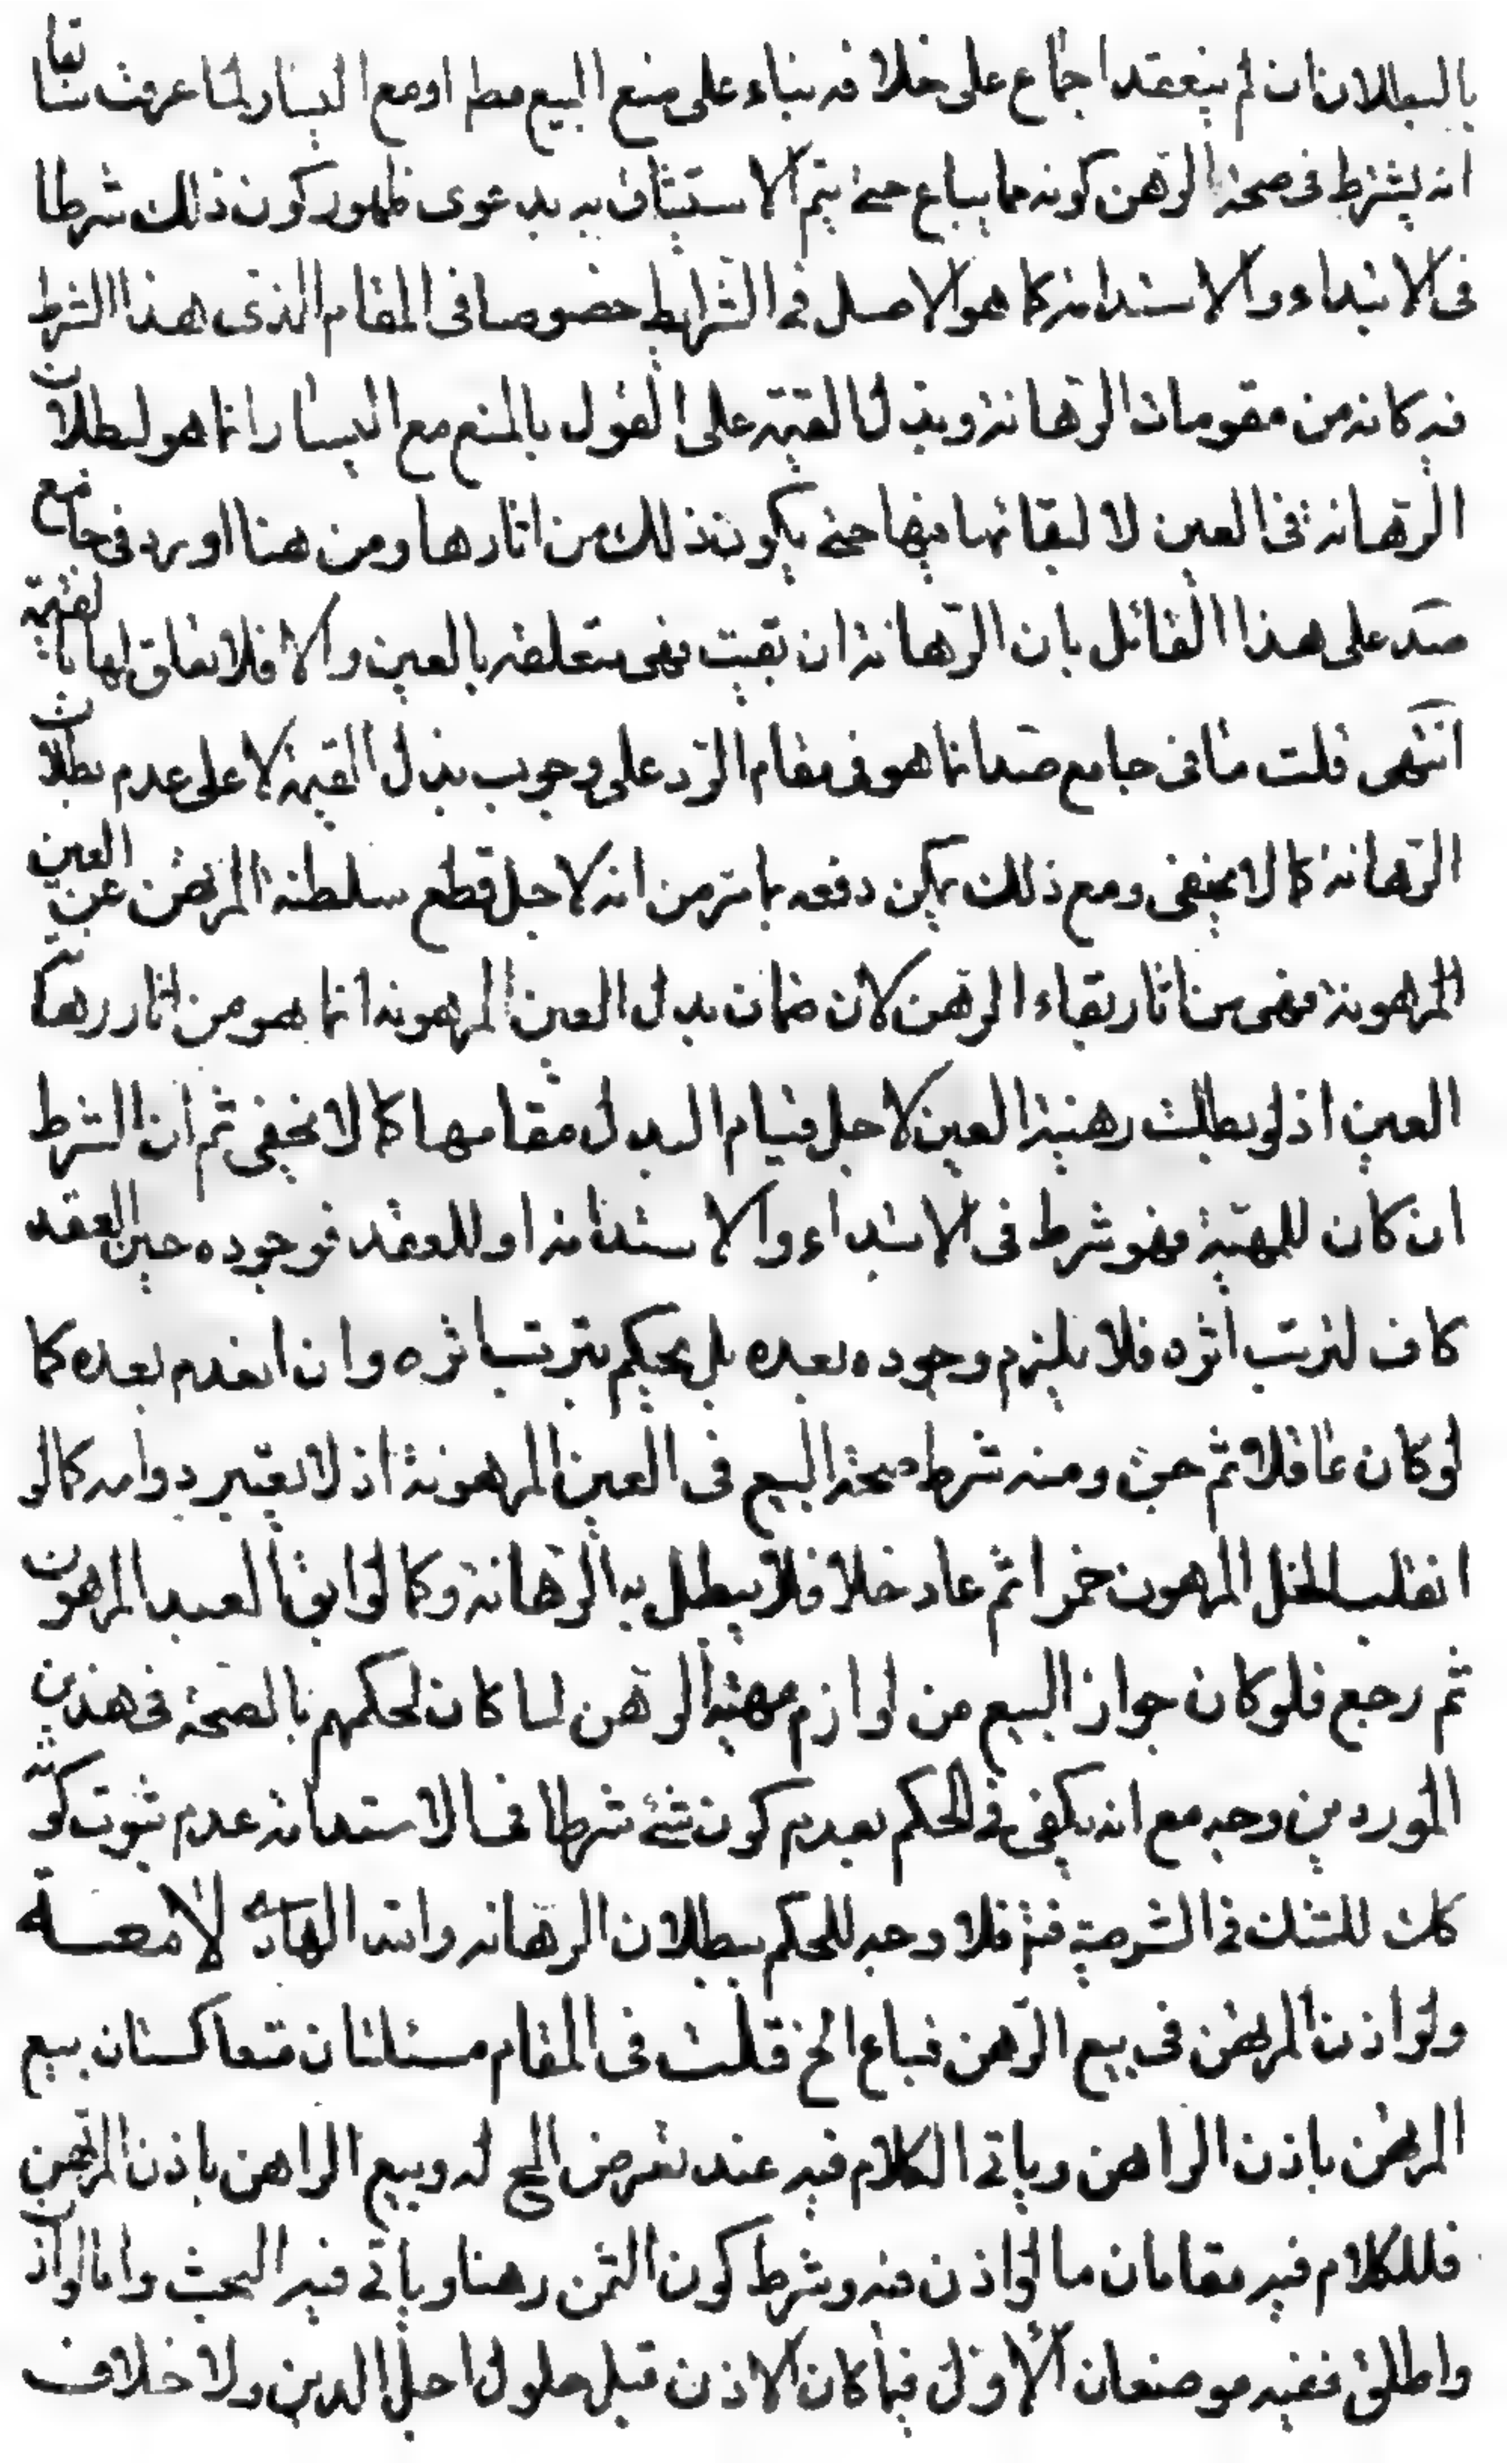 بالبطلان ان لم ينعقد اجماع على خلافه بناء على منع البيع مطر او مع اليسار لما عرفت سابقا
انه يشترط فى صحة الرهن كونه مما يباع حتى يتم الاستيثاق به بدعوى ظهور كون ذلك شرطا
فى الابتداء والاستدامة كما هو الاصل فى الشرايط خصوصا فى المقام الذى هذا الشرط
فيه كانه من مقومات الرهانة وبذل القيمة على القول بالمنع مع اليسار انما هو لبطلان
الرهانة فى العين لا لبقائها فيها حتى يكون ذلك من اثارها ومن هنا اورد فى جامع
صد على هذا القائل بان الرهانة ان بقيت فهى متعلقة بالعين والا فلا تعلق لها بالقيمة
انتهى قلت ما فى جامع صد انما هو فى مقام الرد على وجوب بذل القيمة لا على عدم بطلان
الرهانة كما لا يخفى ومع ذلك يمكن دفعه بما مر من انه لاجل قطع سلطنة المرتهن عن العين
المرهونة فهى من اثار بقاء الرهن لان ضمان بدل العين المرهونة انما هو من اثار رهانة
العين اذ لو بطلت رهنية العين لاجل قيام البدل مقامها كما لا يخفى ثم ان الشرط
ان كان للمهية فهو شرط فى الابتداء والاستدامة او للعقد فوجوده حين العقد
كاف لترتب اثره فلا يلزم وجوده بعده بل يحكم بترتب اثره وان انعدم بعده كما
لو كان عاقلا ثم جن ومنه شرط صحة البيع فى العين المرهونة اذ لا يعتبر دوامه كما لو
انقلب الخل المرهون خمرا ثم عاد خلا فلا يبطل به الرهانة وكما لو ابق العبد المرهون
ثم رجع فلو كان جواز البيع من لوازم مهية الرهن لما كان لحكمهم بالصحة فى هذين
الموردين وجه مع انه يكفى فى الحكم بعدم كون شئ شرطا فى الاستدامة عدم ثبوت كونه
كك للشك فى الشرطية فتم فلا وجه للحكم ببطلان الرهانة والله الهادى
ولو اذن المرتهن فى بيع الرهن فباع الخ قلت فى المقام مسئلتان متعاكستان بيع
المرتهن باذن الراهن وياتى الكلام فيه عند تعرض المص له وبيع الراهن باذن المرتهن
فللكلام فيه مقامان ما لو اذن فيه وشرط كون الثمن رهنا وياتى فيه البحث واما لو اذن
واطلق ففيه موضعان الاول فيما كان الاذن قبل حلول اجل الدين ولا خلاف